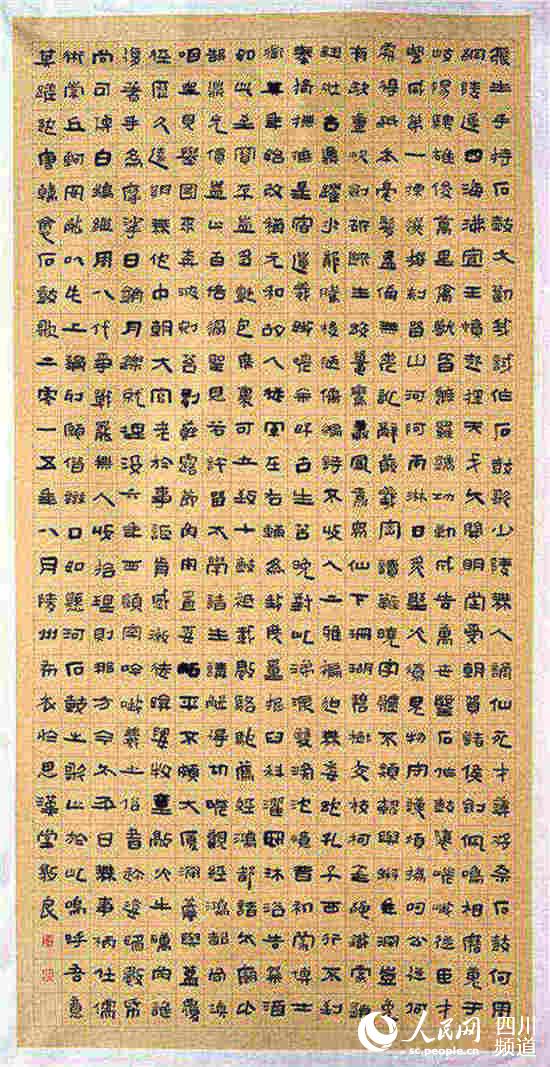 張生手持石鼓文勸我試作石鼓歌少陵無人謫仙死才薄將奈石鼓何周
綱陵遲四海沸宣王憤起揮天戈大開明堂受朝賀諸侯劍佩鳴相磨蒐于
岐陽騁雄俊萬里禽獸皆遮羅鐫功勒成告萬世鑿石作鼓隳嵯峨從臣才
藝咸第一揀選撰刻留山阿雨淋日炙野火燎鬼物守護煩撝呵公從何
處得紙本毫髮盡備無差訛辭嚴義密讀難曉字體不類隸與蝌年深豈免
有缺畫快劍斫斷生蛟鼉鸞翔鳳翥眾仙下珊瑚碧樹交枝柯金繩鐵索鎖
鈕壯古鼎躍水龍騰梭陋儒編詩不收入二雅褊迫無委蛇孔子西行不到
秦掎摭星宿遺羲娥嗟余好古生苦晚對此涕淚雙滂沱憶昔初蒙博士
徵其年始改稱元和故人從軍在右輔為我度量掘臼科濯冠沐浴告祭酒
如此至寶存豈多氈包席裹可立致十鼓祇載數駱駝薦諸太廟比
郜鼎光價豈止百倍過聖恩若許留太學諸生講解得切磋觀經鴻都尚填
咽坐見舉國來奔波剜苔剔蘚露節角安置妥帖平不頗大廈深簷與蓋覆
經歷久遠期無佗中朝大官老於事詎肯感激徒媕婀牧童敲火牛礪角誰
復著手為摩挲日銷月鑠就埋沒六年西顧空吟哦羲之俗書趁姿媚數紙
尚可博白鵝繼周八代爭戰罷無人收拾理則那方今太平日無事柄任儒
術崇丘軻安能以此上論列願借辯口如懸河石鼓之歌止於此嗚呼吾意
其蹉跎唐韓愈石鼓歌二零一五年八月陵州布衣怡思漢堂彭良
人民网 四川频道
sc.people.cn